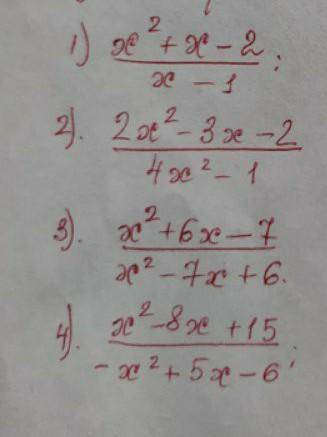 1) x² + x - 2 / x - 1 ;
2). 2x² - 3x - 2 / 4x² - 1
3). x² + 6x - 7 / x² - 7x + 6.
4). x² - 8x + 15 / -x² + 5x - 6 ;